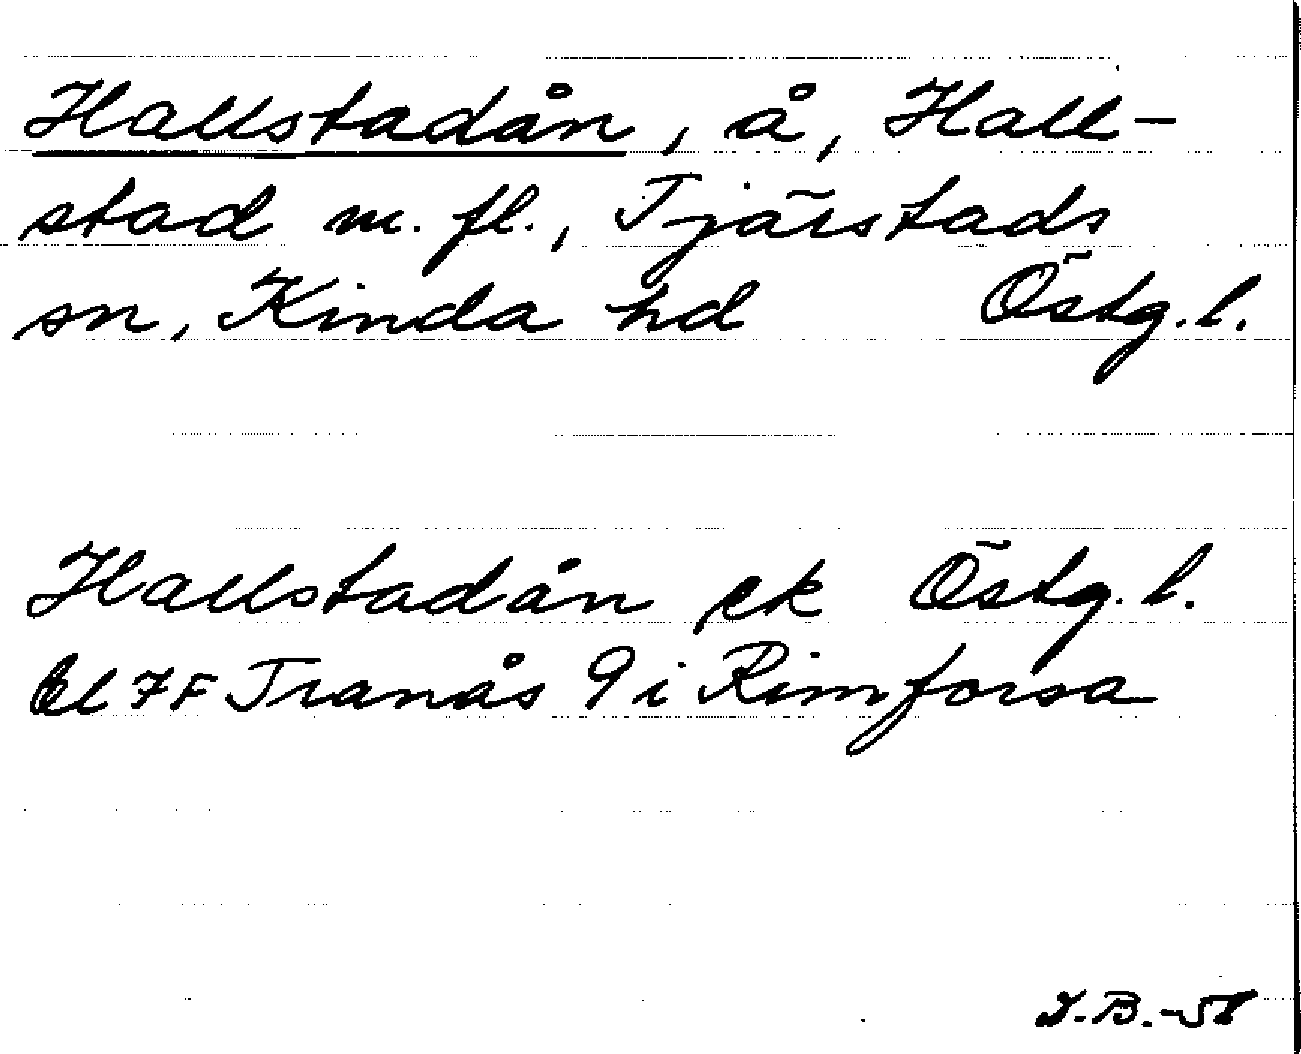 Hallstadån, å, Hall-
stad m. fl., Tjärstads
sn, Kinda hd Östg. l.
Hallstadån ek Östg. l.
Bl 7F Tranås 9 i Rimforsa